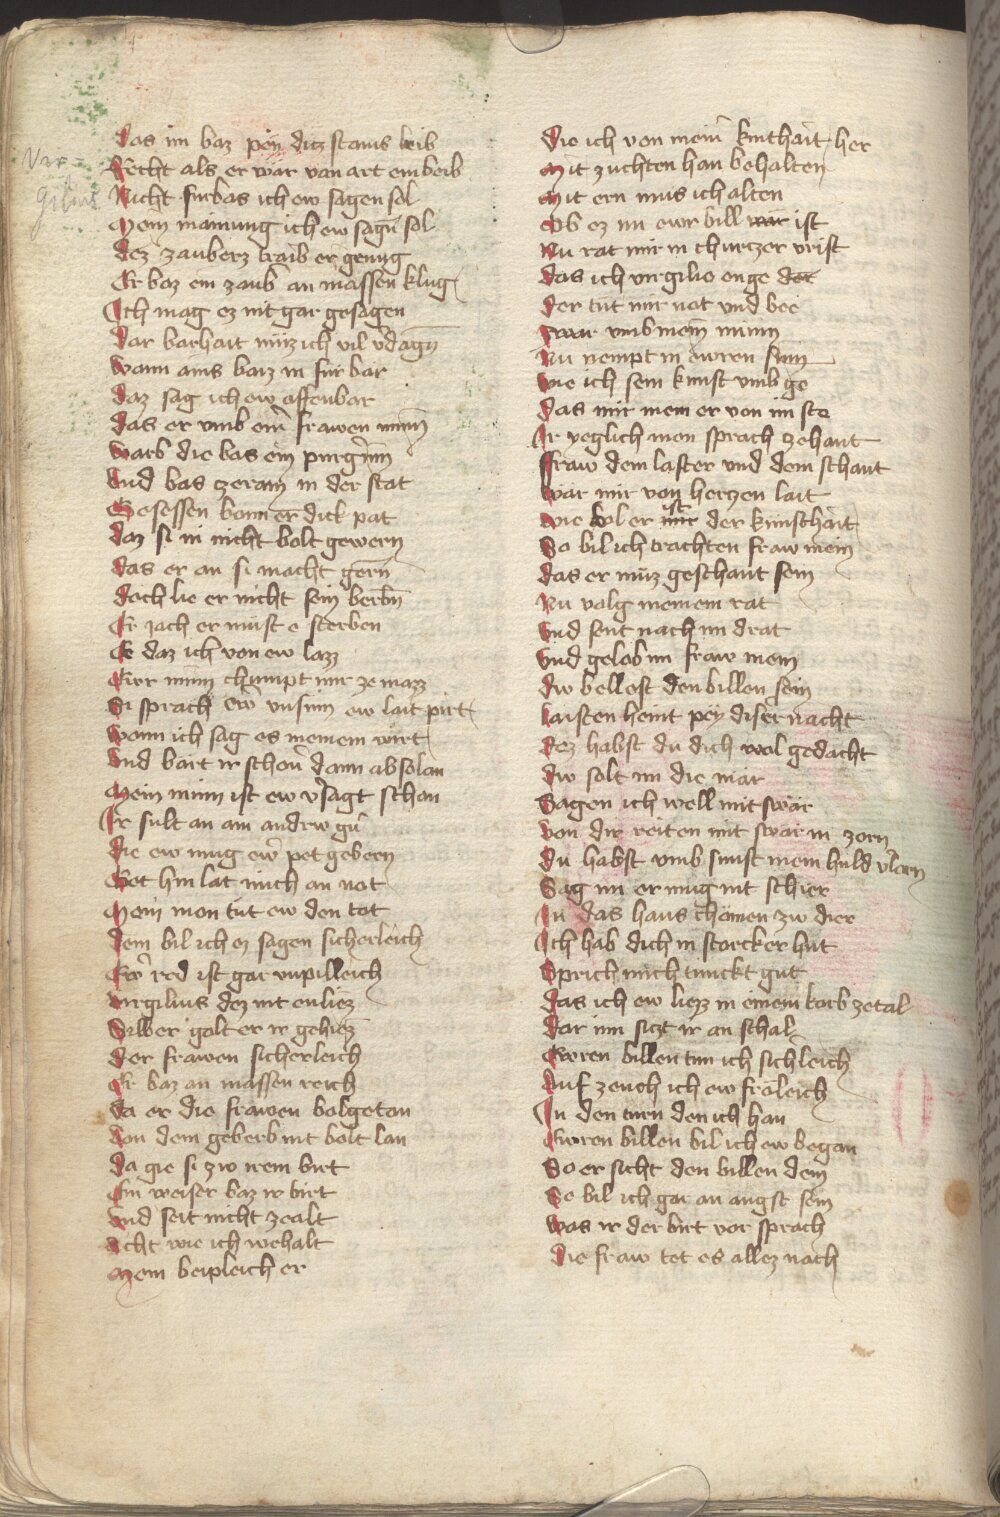 Vir=
gilius
das im baz pey ditz stains leib
Recht als er wär van art ein beib
Nicht furbas ich ew sagen sol
Mein mainung ich ew sagn̄ sol
dez zauberz traib er genug
Er baz ein zaub̄ an massen klug
Ich mag ez nit gar gesagen
Dar barhait muz ich vil v̄dagn̄
wann ains barz in fur bar
daz sag ich ew offenbar
das er vmb ein̄ frawen minn̄
warb die bas ein purgrinn
Vnd bas zeram in der stat
Gesessen bann er dick pat
daz si in nicht bolt gewern
das er an si macht gern
doch lie er nicht sein berbn̄
Er jach er must e sterben
E daz ich von ew lazz
Ewr minn chumpt mir ze mazz
Si sprach ew̄ vnsinn ew lait pirt
wann ich sag es meinem wirt
Vnd bart ir schon̄ dann absolon
Mein minn ist ew v̄sagt schon
Ir sult an ain andrew gn̄
die ew mug ew̄ pet gebern
Get hin lat mich an not
Mein mon tut ew den tot
dem bil ich ez sagen sicherleich
Ew̄ red ist gar vnpilleich
virgilius dez nit enliez
Silber golt er ir gehiez
der frawen sicherleich
Er baz an massen reich
da er die frawen bolgetan
Von dem geberb nit bolt lan
da gie si zw irem birt
Ein weiser baz ir birt
Vnd seit nicht zealt
Acht wie ich wehalt
Mein beipleich er
Die ich von mein̄ kinthait her
Mit zuchten han behalten
Mit ern mus ich alten
Ob ez nu ewr bill wär ist
Nu rat mir in churtzer vrist
das ich virgilio enge der
der tut mir not vnd bee
zwar vmb mein minn
Nu nempt in ewren sinn
wie ich sein kunst vmb ge
das mir mein er von im ste
Ir yeglich mon sprach zehant
fraw dein laster vnd dein schant
wär mir von hertzen lait
wie bol er ist mir der kunschait
So bil ich trachten fraw mein
das er muz geschant sein
Nu volg meinem rat
Vnd sent nach im drat
Vnd gelob im fraw mein
dw bellest den billen sein
laisten heint pey diser nacht
dez habst du dich wol gedacht
dw solt im die mär
Sagen ich well mit swär
von dir reiten mit swär in zorn
Du habst vmb sunst mein huld v̄lorn
Sag im er mug nit schier
In das haus chömen zw dier
Ich hab dich in starcker hut
Sprich mich tunckt gut
das ich ew liezz in einem korb zetal
dar inn sitzt ir an schal
Ewren billen tun ich sichleich
Auf zeuch ich ew fröleich
In den turn den ich han
Ewren billen bil ich ew began
So er sicht den billen dein
So bil ich gar an angst sein
was ir der birt vor sprach
die fraw tet es allez nach